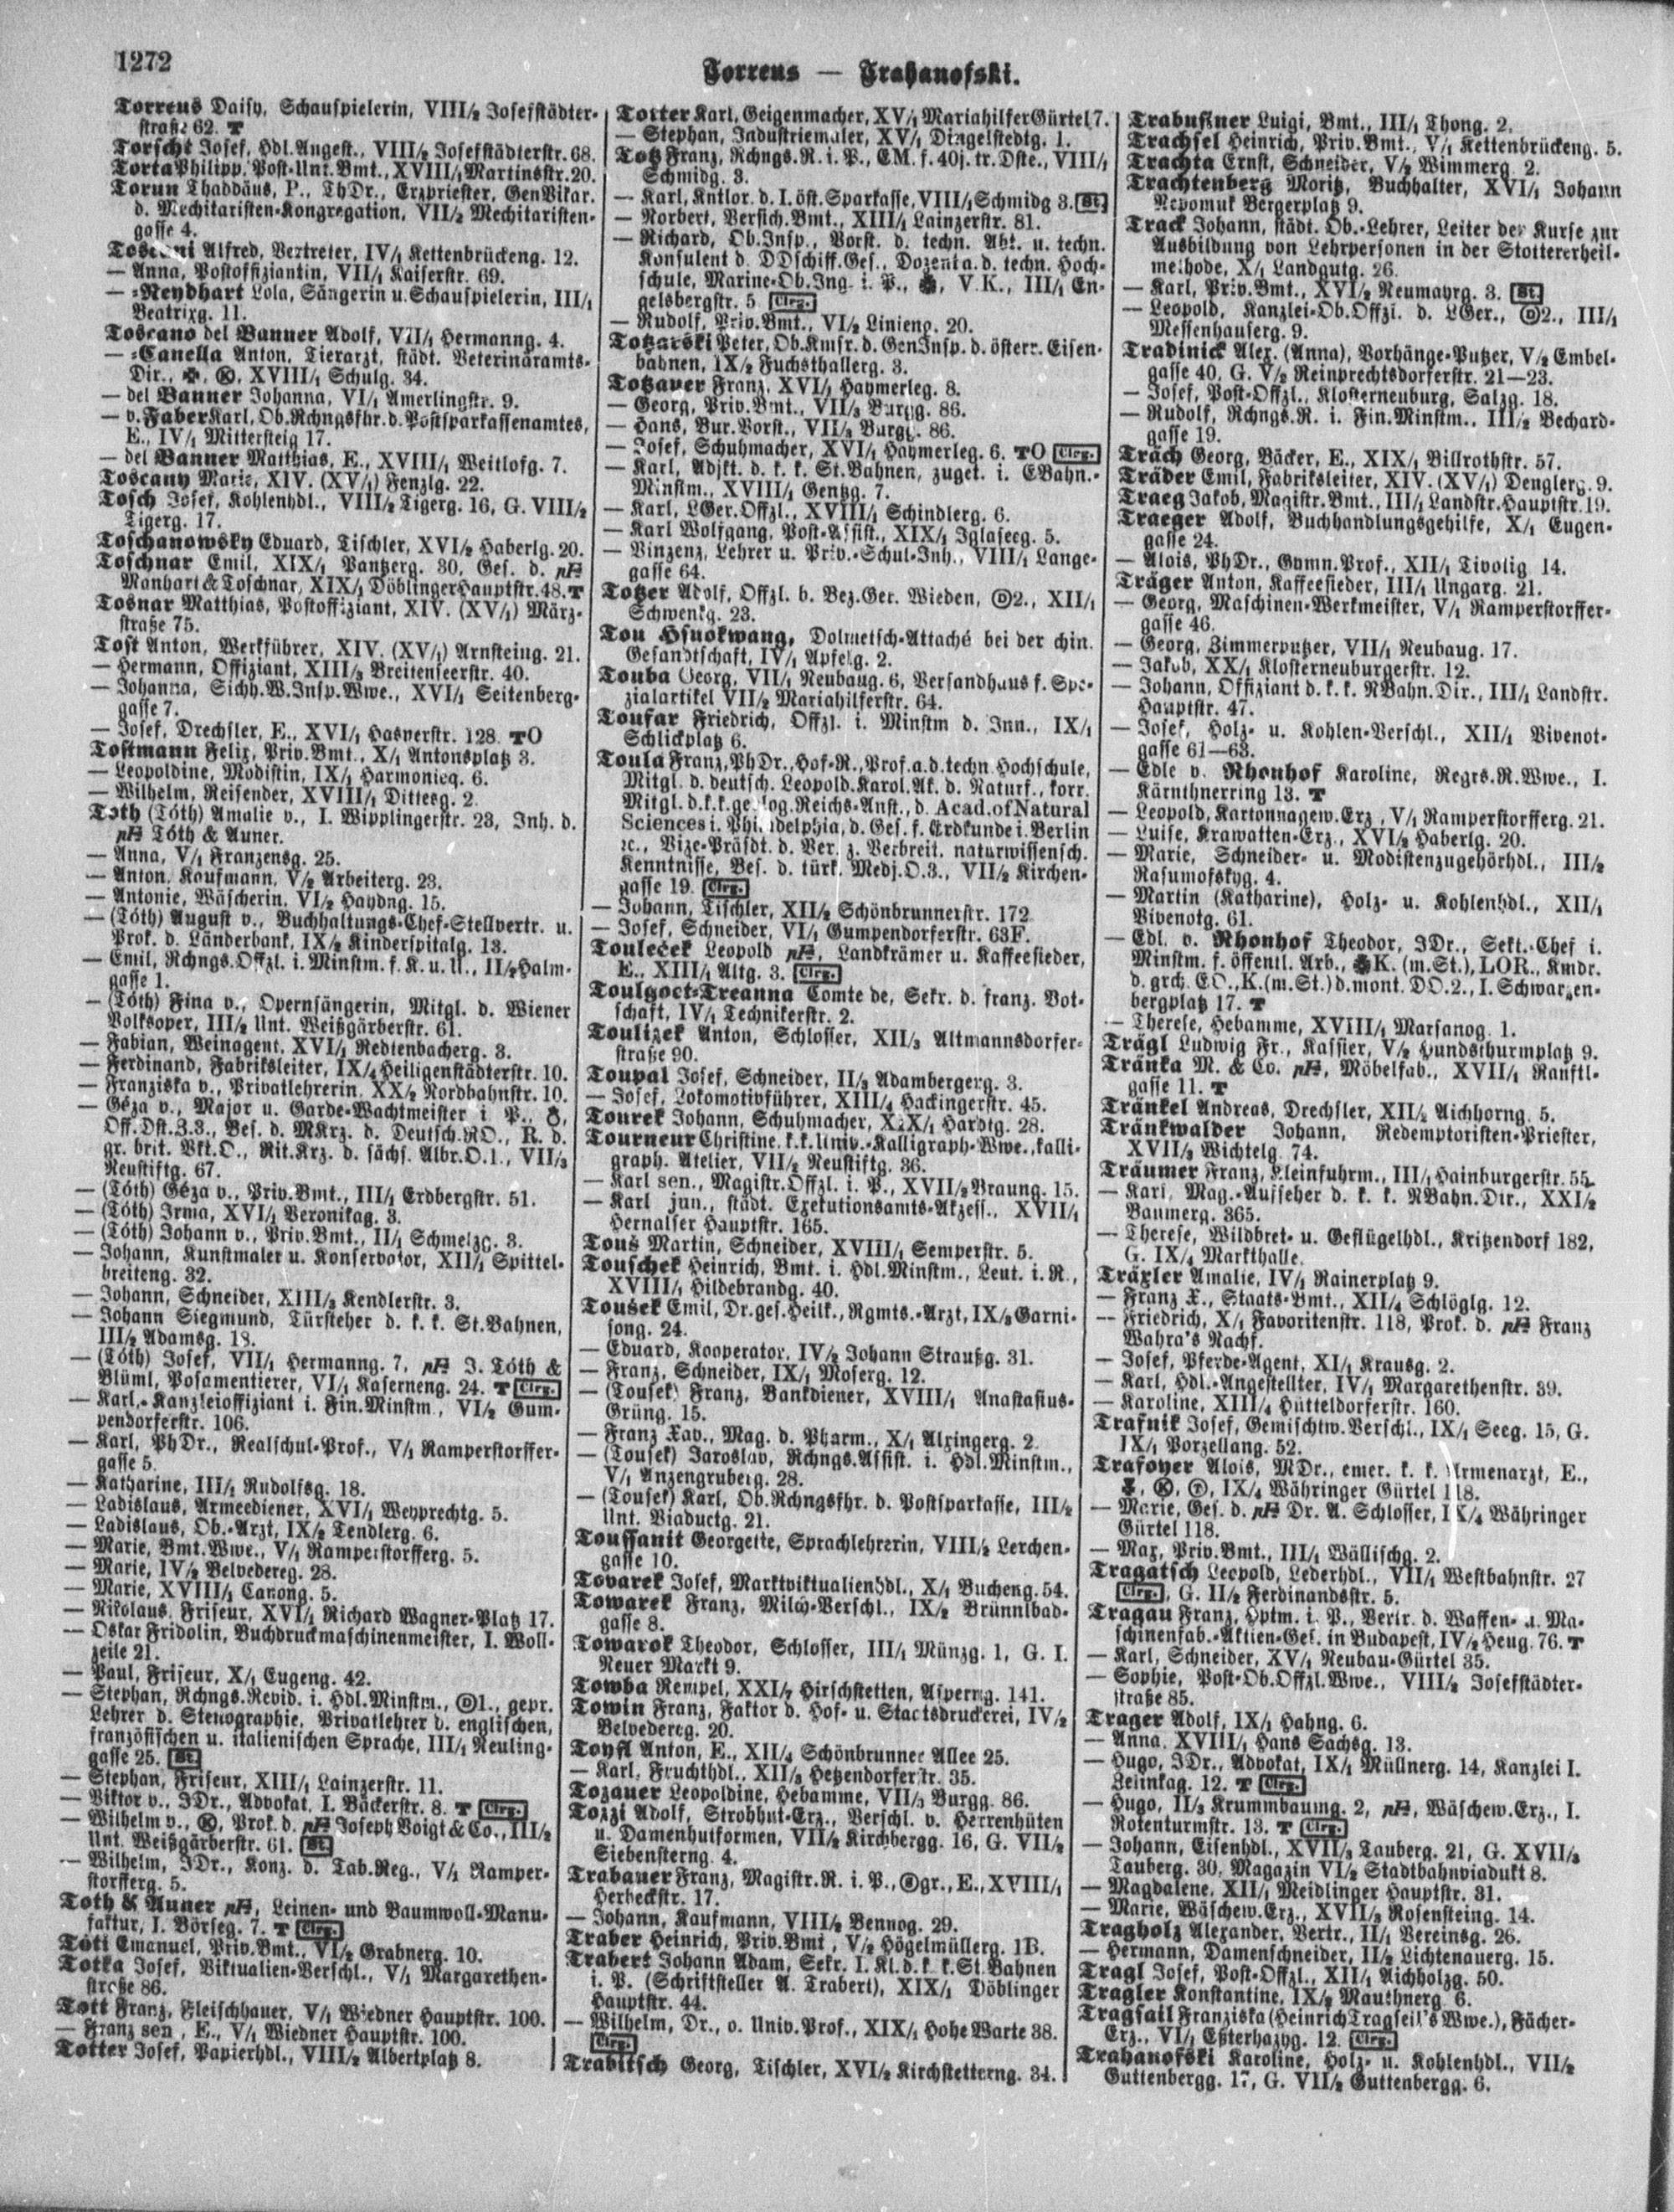 1272
Torrens — Trahanofski.
Torrens Daisy, Schauspielerin, VIII/2 Josefstädter-
straße 62. T
Torscht Josef, Hdl.Angest., VIII/2 Josefstädterstr. 68.
Torta Philipp, Post-Unt.Bmt., XVIII/1 Martinsstr. 20.
Torun Thaddäus, P., ThDr., Erzpriester, GenVikar.
d. Mechitaristen-Kongregation, VII/2 Mechitaristen-
gasse 4.
Toscani Alfred, Vertreter, IV/1 Kettenbrückeng. 12.
— Anna, Postoffiziantin, VII/1 Kaiserstr. 69.
— -Neydhart Lola, Sängerin u. Schauspielerin, III/1
Beatrixg. 11.
Toscano del Banner Adolf, VII/1 Hermanng. 4.
— -Canella Anton, Tierarzt, städt. Veterinäramts-
Dir., XVIII/1 Schulg. 34.
— del Banner Johanna, VI/1 Amerlingstr. 9.
— v. Faber Karl, Ob.Rchngsfhr. d. Postsparkassenamtes,
E., IV/1 Mittersteig 17.
— del Banner Matthias, E., XVIII/1 Weitlofg. 7.
Toscany Marie, XIV. (XV/1) Fenzlg. 22.
Tosch Josef, Kohlenhdl., VIII/2 Tigerg. 16, G. VIII/2
Tigerg. 17.
Toschanowsky Eduard, Tischler, XVI/2 Haberlg. 20.
Toschnar Emil, XIX/1 Pantzerg. 30, Ges. d. pH
Manhart & Toschnar, XIX/1 Döblinger Hauptstr. 48. T
Tosnar Matthias, Postoffiziant, XIV. (XV/1) März-
straße 75.
Tost Anton, Werkführer, XIV. (XV/1) Arnsteing. 21.
— Hermann, Offiziant, XIII/3 Breitenseerstr. 40.
— Johanna, Sichh.W.Insp.Wwe., XVI/1 Seitenberg-
gasse 7.
— Josef, Drechsler, E., XVI/1 Hasnerstr. 128. TO
Tostmann Felix, Priv.Bmt., X/1 Antonsplatz 3.
— Leopoldine, Modistin, IX/1 Harmonieg. 6.
— Wilhelm, Reisender, XVIII/1 Dittesg. 2.
Toth (Tóth) Amalie v., I. Wipplingerstr. 23, Inh. d.
pH Tóth & Auner.
— Anna, V/1 Franzensg. 25.
— Anton, Kaufmann, V/2 Arbeiterg. 23.
— Antonie, Wäscherin, VI/2 Haydng. 15.
— (Tóth) August v., Buchhaltungs-Chef-Stellvertr. u.
Prok. d. Länderbank, IX/2 Kinderspitalg. 13.
— Emil, Rchngs.Offzl. i. Minstm. f. K. u. U., II/2 Halm-
gasse 1.
— (Tóth) Fina v., Opernsängerin, Mitgl. d. Wiener
Volksoper, III/2 Unt. Weißgärberstr. 61.
— Fabian, Weinagent, XVI/1 Redtenbacherg. 3.
— Ferdinand, Fabriksleiter, IX/4 Heiligenstädterstr. 10.
— Franziska v., Privatlehrerin, XX/2 Nordbahnstr. 10.
— Géza v., Major u. Garde-Wachtmeister i. P.,
Off.Dst.Z.3., Bes. d. MKrz. d. Deutsch.RO., R. d.
gr. brit. Vkt.O., Rit.Krz. d. sächs. Albr.O.1., VII/3
Neustiftg. 67.
— (Tóth) Géza v., Priv.Bmt., III/1 Erdbergstr. 51.
— (Tóth) Irma, XVI/1 Veronikag. 3.
— (Tóth) Johann v., Priv.Bmt., II/1 Schmelzg. 3.
— Johann, Kunstmaler u. Konservator, XII/1 Spittel-
breiteng. 32.
— Johann, Schneider, XIII/3 Kendlerstr. 3.
— Johann Siegmund, Türsteher d. k. k. St.Bahnen,
III/2 Adamsg. 18.
— (Tóth) Josef, VII/1 Hermanng. 7, pH J. Tóth &
Blüml, Posamentierer, VI/1 Kaserneng. 24. T Clrg.
— Karl, Kanzleioffiziant i. Fin.Minstm., VI/2 Gum-
pendorferstr. 106.
— Karl, PhDr., Realschul-Prof., V/1 Ramperstorffer-
gasse 5.
— Katharine, III/1 Rudolfsg. 18.
— Ladislaus, Armeediener, XVI/1 Weyprechtg. 5.
— Ladislaus, Ob.-Arzt, IX/2 Tendlerg. 6.
— Marie, Bmt.Wwe., V/1 Ramperstorfferg. 5.
— Marie, IV/2 Belvedereg. 28.
— Marie, XVIII/1 Canong. 5.
— Nikolaus, Friseur, XVI/1 Richard Wagner-Platz 17.
— Oskar Fridolin, Buchdruckmaschinenmeister, I. Woll-
zeile 21.
— Paul, Friseur, X/1 Eugeng. 42.
— Stephan, Rchngs.Revid. i. Hdl.Minstm., 1., gepr.
Lehrer d. Stenographie, Privatlehrer d. englischen,
französischen u. italienischen Sprache, III/1 Neuling-
gasse 25. St.
— Stephan, Friseur, XIII/1 Lainzerstr. 11.
— Viktor v., JDr., Advokat, I. Bäckerstr. 8. T Clrg.
— Wilhelm v., Prok. d. pH Joseph Voigt & Co., III/2
Unt. Weißgärberstr. 61. St.
— Wilhelm, JDr., Konz. d. Tab.Reg., V/1 Ramper-
storfferg. 5.
Toth & Auner pH, Leinen- und Baumwoll-Manu-
faktur, I. Börseg. 7. T Clrg.
Tóti Emanuel, Priv.Bmt., VI/2 Grabnerg. 10.
Totka Josef, Viktualien-Verschl., V/1 Margarethen-
straße 86.
Tott Franz, Fleischhauer, V/1 Wiedner Hauptstr. 100.
— Franz sen., E., V/1 Wiedner Hauptstr. 100.
Totter Josef, Papierhdl., VIII/2 Albertplatz 8.
Totter Karl, Geigenmacher, XV/1 Mariahilfer Gürtel 7.
— Stephan, Industriemaler, XV/1 Dingelstedtg. 1.
Totz Franz, Rchngs.R. i. P., EM. f. 40j. tr. Dste., VIII/1
Schmidg. 3.
— Karl, Kntlor. d. I. öst. Sparkasse, VIII/1 Schmidg 3. St.
— Norbert, Versich.Bmt., XIII/1 Lainzerstr. 81.
— Richard, Ob.Insp., Vorst. d. techn. Abt. u. techn.
Konsulent d. DDschiff.Ges., Dozent a. d. techn. Hoch-
schule, Marine-Ob.Ing. i. P., V.K., III/1 En-
gelsbergstr. 5. Clrg.
— Rudolf, Priv.Bmt., VI/2 Linieng. 20.
Totzarski Peter, Ob.Kmsr. d. GenInsp. d. österr. Eisen-
bahnen, IX/2 Fuchsthallerg. 3.
Totzauer Franz, XVI/1 Haymerleg. 8.
— Georg, Priv.Bmt., VII/3 Burgg. 86.
— Hans, Bur.Vorst., VII/3 Burgg. 86.
— Josef, Schuhmacher, XVI/1 Haymerleg. 6. TO Clrg.
— Karl, Adjkt. d. k. k. St.Bahnen, zuget. i. EBahn.-
Minstm., XVIII/1 Gentzg. 7.
— Karl, LGer.Offzl., XVIII/1 Schindlerg. 6.
— Karl Wolfgang, Post-Assist., XIX/1 Iglaseeg. 5.
— Vinzenz, Lehrer u. Priv.-Schul-Inh., VIII/1 Lange-
gasse 64.
Totzer Adolf, Offzl. b. Bez.Ger. Wieden, 2., XII/1
Schwenkg. 23.
Tou Hsuokwang, Dolmetsch-Attaché bei der chin.
Gesandtschaft, IV/1 Apfelg. 2.
Touba Georg, VII/1 Neubaug. 6, Versandhaus f. Spe-
zialartikel VII/2 Mariahilferstr. 64.
Toufar Friedrich, Offzl. i. Minstm d. Inn., IX/1
Schlickplatz 6.
Toula Franz, PhDr., Hof-R., Prof. a. d. techn. Hochschule,
Mitgl. d. deutsch. Leopold.Karol.Ak. d. Naturf., korr.
Mitgl. d. k. k. geolog. Reichs-Anst., d. Acad. of Natural
Sciences i. Philadelphia, d. Ges. f. Erdkunde i. Berlin
ꝛc., Vize-Präsdt. d. Ver. z. Verbreit. naturwissensch.
Kenntnisse, Bes. d. türk. Medj.O.3., VII/2 Kirchen-
gasse 19. Clrg.
— Johann, Tischler, XII/2 Schönbrunnerstr. 172.
— Josef, Schneider, VI/1 Gumpendorferstr. 63F.
Touleček Leopold pH, Landkrämer u. Kaffeesieder,
E., XIII/1 Altg. 3. Clrg.
Toulgoet-Treanna Comte de, Sekr. d. franz. Bot-
schaft, IV/1 Technikerstr. 2.
Toulizek Anton, Schlosser, XII/3 Altmannsdorfer-
straße 90.
Toupal Josef, Schneider, II/3 Adambergerg. 3.
— Josef, Lokomotivführer, XIII/4 Hackingerstr. 45.
Tourek Johann, Schuhmacher, XIX/1 Hardtg. 28.
Tourneur Christine, k.k. Univ.-Kalligraph-Wwe., kalli-
graph. Atelier, VII/2 Neustiftg. 36.
— Karl sen., Magistr.Offzl. i. P., XVII/2 Braung. 15.
— Karl jun., städt. Exekutionsamts-Akzess., XVII/1
Hernalser Hauptstr. 165.
Touš Martin, Schneider, XVIII/1 Semperstr. 5.
Touschek Heinrich, Bmt. i. Hdl.Minstm., Leut. i. R.,
XVIII/1 Hildebrandg. 40.
Toušek Emil, Dr. ges. Heilk., Rgmts.-Arzt, IX/3 Garni-
song. 24.
— Eduard, Kooperator, IV/2 Johann Straußg. 31.
— Franz, Schneider, IX/1 Moserg. 12.
— (Tousek) Franz, Bankdiener, XVIII/1 Anastasius-
Grüng. 15.
— Franz Xav., Mag. d. Pharm., X/1 Alxingerg. 2.
— (Tousek) Jaroslav, Rchngs.Assist. i. Hdl.Minstm.,
V/1 Anzengruberg. 28.
— (Tousek) Karl, Ob.Rchngsfhr. d. Postsparkasse, III/2
Unt. Viaductg. 21.
Toussanit Georgette, Sprachlehrerin, VIII/2 Lerchen-
gasse 10.
Tovarek Josef, Marktviktualienhdl., X/1 Bucheng. 54.
Towarek Franz, Milch-Verschl., IX/2 Brünnlbad-
gasse 8.
Towarok Theodor, Schlosser, III/1 Münzg. 1, G. I.
Neuer Markt 9.
Towba Rempel, XXI/7 Hirschstetten, Asperng. 141.
Towin Franz, Faktor d. Hof- u. Staatsdruckerei, IV/2
Belvedereg. 20.
Toyfl Anton, E., XII/4 Schönbrunner Allee 25.
— Karl, Fruchthdl., XII/3 Hetzendorferstr. 35.
Tozauer Leopoldine, Hebamme, VII/3 Burgg. 86.
Tozzi Adolf, Strohhut-Erz., Verschl. v. Herrenhüten
u. Damenhutformen, VII/2 Kirchbergg. 16, G. VII/2
Siebensterng. 4.
Trabauer Franz, Magistr.R. i. P., gr., E., XVIII/1
Herbeckstr. 17.
— Johann, Kaufmann, VIII/2 Bennog. 29.
Traber Heinrich, Priv.Bmt., V/2 Högelmüllerg. 1B.
Trabert Johann Adam, Sekr. I. Kl. d. k. k. St.Bahnen
i. P. (Schriftsteller A. Trabert), XIX/1 Döblinger
Hauptstr. 44.
— Wilhelm, Dr., o. Univ.Prof., XIX/1 Hohe Warte 38.
Clrg.
Trabitsch Georg, Tischler, XVI/2 Kirchstetterng. 34.
Trabußner Luigi, Bmt., III/1 Thong. 2.
Trachsel Heinrich, Priv.Bmt., V/1 Kettenbrückeng. 5.
Trachta Ernst, Schneider, V/2 Wimmerg. 2.
Trachtenberg Moritz, Buchhalter, XVI/1 Johann
Nepomuk Bergerplatz 9.
Track Johann, städt. Ob.-Lehrer, Leiter der Kurse zur
Ausbildung von Lehrpersonen in der Stottererheil-
methode, X/1 Landgutg. 26.
— Karl, Priv.Bmt., XVI/2 Neumayrg. 3. St.
— Leopold, Kanzlei-Ob.Offzl. d. LGer., 2., III/1
Messenhauserg. 9.
Tradinick Alex. (Anna), Vorhänge-Putzer, V/2 Embel-
gasse 40, G. V/2 Reinprechtsdorferstr. 21—23.
— Josef, Post-Offzl., Klosterneuburg, Salzg. 18.
— Rudolf, Rchngs.R. i. Fin.Minstm., III/2 Bechard-
gasse 19.
Träch Georg, Bäcker, E., XIX/1 Billrothstr. 57.
Träder Emil, Fabriksleiter, XIV. (XV/1) Denglerg. 9.
Traeg Jakob, Magistr.Bmt., III/1 Landstr. Hauptstr. 19.
Traeger Adolf, Buchhandlungsgehilfe, X/1 Eugen-
gasse 24.
— Alois, PhDr., Gymn.Prof., XII/1 Tivolig. 14.
Träger Anton, Kaffeesieder, III/1 Ungarg. 21.
— Georg, Maschinen-Werkmeister, V/1 Ramperstorffer-
gasse 46.
— Georg, Zimmerputzer, VII/1 Neubaug. 17.
— Jakob, XX/1 Klosterneuburgerstr. 12.
— Johann, Offiziant d. k. k. NBahn.Dir., III/1 Landstr.
Hauptstr. 47.
— Josef, Holz- u. Kohlen-Verschl., XII/1 Vivenot-
gasse 61—63.
— Edle v. Rhonhof Karoline, Regrs.R.Wwe., I.
Kärnthnerring 13. T
— Leopold, Kartonnagew.Erz., V/1 Ramperstorfferg. 21.
— Luise, Krawatten-Erz., XVI/2 Haberlg. 20.
— Marie, Schneider- u. Modistenzugehörhdl., III/2
Rasumofskyg. 4.
— Martin (Katharine), Holz- u. Kohlenhdl., XII/1
Vivenotg. 61.
— Edl. v. Rhonhof Theodor, JDr., Sekt.-Chef i.
Minstm. f. öffentl. Arb., K. (m.St.), LOR., Kmdr.
d. grch. EO., K. (m. St.) d. mont. DO.2., I. Schwarzen-
bergplatz 17. T
— Therese, Hebamme, XVIII/1 Marsanog. 1.
Trägl Ludwig Fr., Kassier, V/2 Hundsthurmplatz 9.
Tränka M. & Co. pH, Möbelfab., XVII/1 Ranftl-
gasse 11. T
Tränkel Andreas, Drechsler, XII/2 Aichhorng. 5.
Tränkwalder Johann, Redemptoristen-Priester,
XVII/2 Wichtelg. 74.
Träumer Franz, Kleinfuhrm., III/1 Hainburgerstr. 55.
— Karl, Mag.-Aufseher d. k. k. NBahn.Dir., XXI/2
Baumerg. 365.
— Therese, Wildbret- u. Geflügelhdl., Kritzendorf 182,
G. IX/4 Markthalle.
Träxler Amalie, IV/1 Rainerplatz 9.
— Franz X., Staats-Bmt., XII/4 Schlöglg. 12.
— Friedrich, X/1 Favoritenstr. 118, Prok. d. pH Franz
Wahra's Nachf.
— Josef, Pferde-Agent, XI/1 Krausg. 2.
— Karl, Hdl.-Angestellter, IV/1 Margarethenstr. 39.
— Karoline, XIII/4 Hütteldorferstr. 160.
Trafnik Josef, Gemischtw.Verschl., IX/1 Seeg. 15, G.
IX/1 Porzellang. 52.
Trafoyer Alois, MDr., emer. k. k. Armenarzt, E.,
IX/4 Währinger Gürtel 118.
— Marie, Ges. d. pH Dr. A. Schlosser, IX/4 Währinger
Gürtel 118.
— Max, Priv.Bmt., III/1 Wällischg. 2.
Tragatsch Leopold, Lederhdl., VII/1 Westbahnstr. 27
Clrg., G. II/2 Ferdinandsstr. 5.
Tragau Franz, Hptm. i. P., Vertr. d. Waffen- u. Ma-
schinenfab.-Aktien-Ges. in Budapest, IV/2 Heug. 76. T
— Karl, Schneider, XV/1 Neubau-Gürtel 35.
— Sophie, Post-Ob.Offzl.Wwe., VIII/2 Josefstädter-
straße 85.
Trager Adolf, IX/1 Hahng. 6.
— Anna, XVIII/1 Hans Sachsg. 13.
— Hugo, JDr., Advokat, IX/1 Müllnerg. 14, Kanzlei I.
Teinfag. 12. T Clrg.
— Hugo, II/3 Krummbaumg. 2, pH, Wäschew.Erz., I.
Rotenturmstr. 13. T Clrg.
— Johann, Eisenhdl., XVII/3 Tauberg. 21, G. XVII/3
Tauberg. 30, Magazin VI/2 Stadtbahnviadukt 8.
— Magdalene, XII/1 Meidlinger Hauptstr. 31.
— Marie, Wäschew.Erz., XVII/3 Rosensteing. 14.
Tragholz Alexander, Vertr., II/1 Vereinsg. 26.
— Hermann, Damenschneider, II/2 Lichtenauerg. 15.
Tragl Josef, Post-Offzl., XII/1 Aichholzg. 50.
Tragler Konstantine, IX/2 Mauthnerg. 6.
Tragsail Franziska (Heinrich Tragseil's Wwe.), Fächer-
Erz., VI/1 Eßterhazyg. 12. Clrg.
Trahanofski Karoline, Holz- u. Kohlenhdl., VII/2
Guttenbergg. 17, G. VII/2 Guttenbergg. 6.